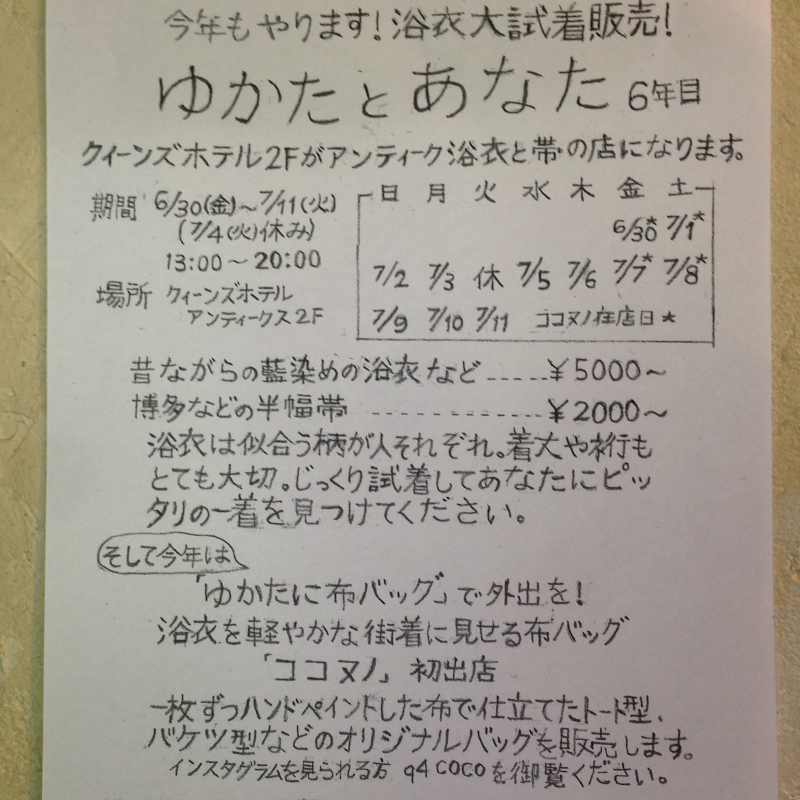 今年もやります！浴衣大試着販売！
ゆかたとあなた 6年目
クィーンズホテル2Fがアンティーク浴衣と帯の店になります。
期間 6/30(金)～7/11(火)
(7/4(火)休み)
13:00～20:00
場所 クィーンズホテル
アンティークス2F
日 月 火 水 木 金 土
6/30* 7/1*
7/2 7/3 休 7/5 7/6 7/7* 7/8*
7/9 7/10 7/11 ココヌノ在店日*
昔ながらの藍染めの浴衣など-----¥5000～
博多などの半幅帯 --------------¥2000～
浴衣は似合う柄が人それぞれ。着丈や裄も
とても大切。じっくり試着してあなたにピッ
タリの一着を見つけてください。
そして今年は
「ゆかたに布バッグ」で外出を！
浴衣を軽やかな街着に見せる布バッグ
「ココヌノ」初出店
一枚ずつハンドペイントした布で仕立てたトート型、
バケツ型などのオリジナルバッグを販売します。
インスタグラムを見られる方 q4cocoを御覧ください。